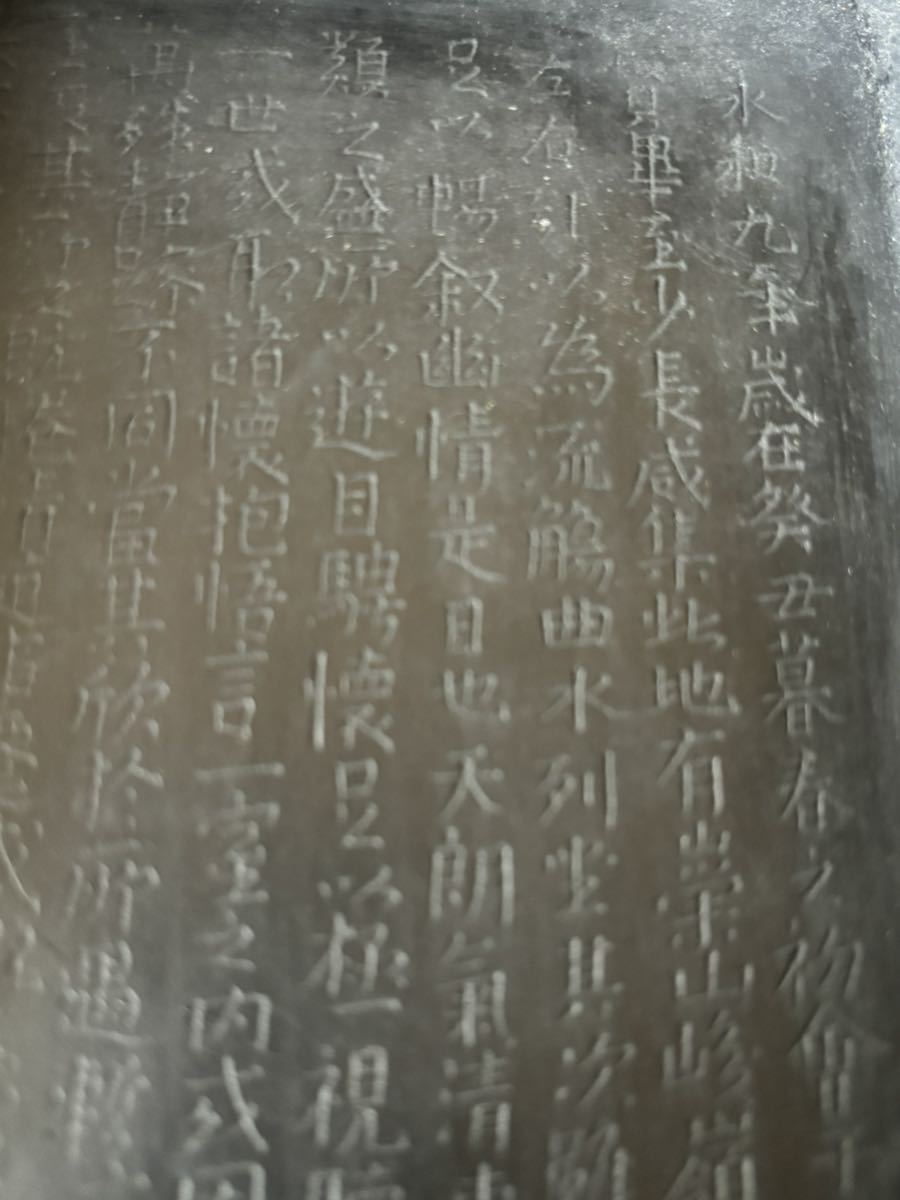 永和九年歲在癸丑暮春之初會于
賢畢至少長咸集此地有崇山峻嶺
左右引以為流觴曲水列坐其次雖
足以暢叙幽情是日也天朗氣清惠
類之盛所以遊目騁懷足以極視聽
一世或取諸懷抱悟言一室之內或因
萬殊静躁不同當其欣於所遇暫